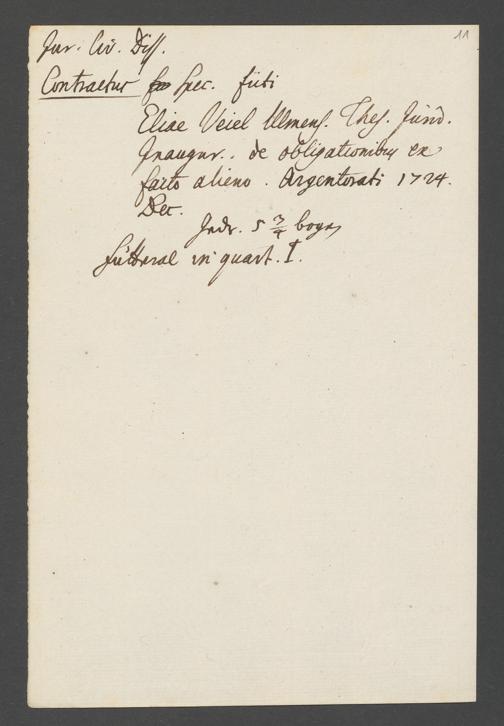 11
Jur. Civ. Diss.
Contractus Spec. futi
Eliae Veiel Ulmens. Thes. Jurid.
Inaugur. de obligationibus ex
facto alieno. Argentorati 1724.
Dec.
Jndr. 5 3/4 bogen
futteral in quart. I.